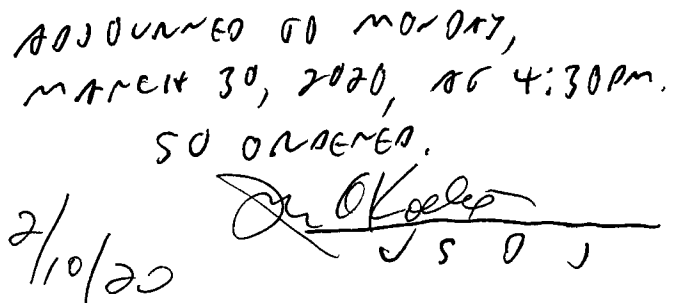 ADJOURNED TO MONDAY,
MARCH 30, 2020, AT 4:30PM.
SO ORDERED.
2/10/20
USDJ